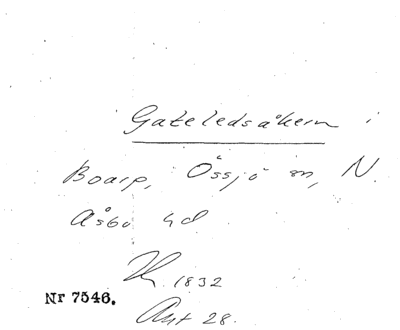 Gateledsåkern i
Boarp, Össjö sn, N.
Åsbo hd
1832
Nr 7546.
Akt 28.